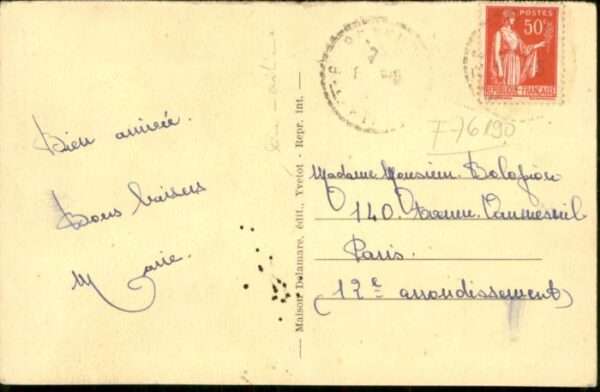 Bien arrivée.
Bons baisers
Marie.
Maison Delamare, édit., Yvetot - Repr. int.
POSTES
50c
REPUBLIQUE FRANÇAISE
F-76190
Madame Monsieur
140
Paris.
(12e arrondissement)